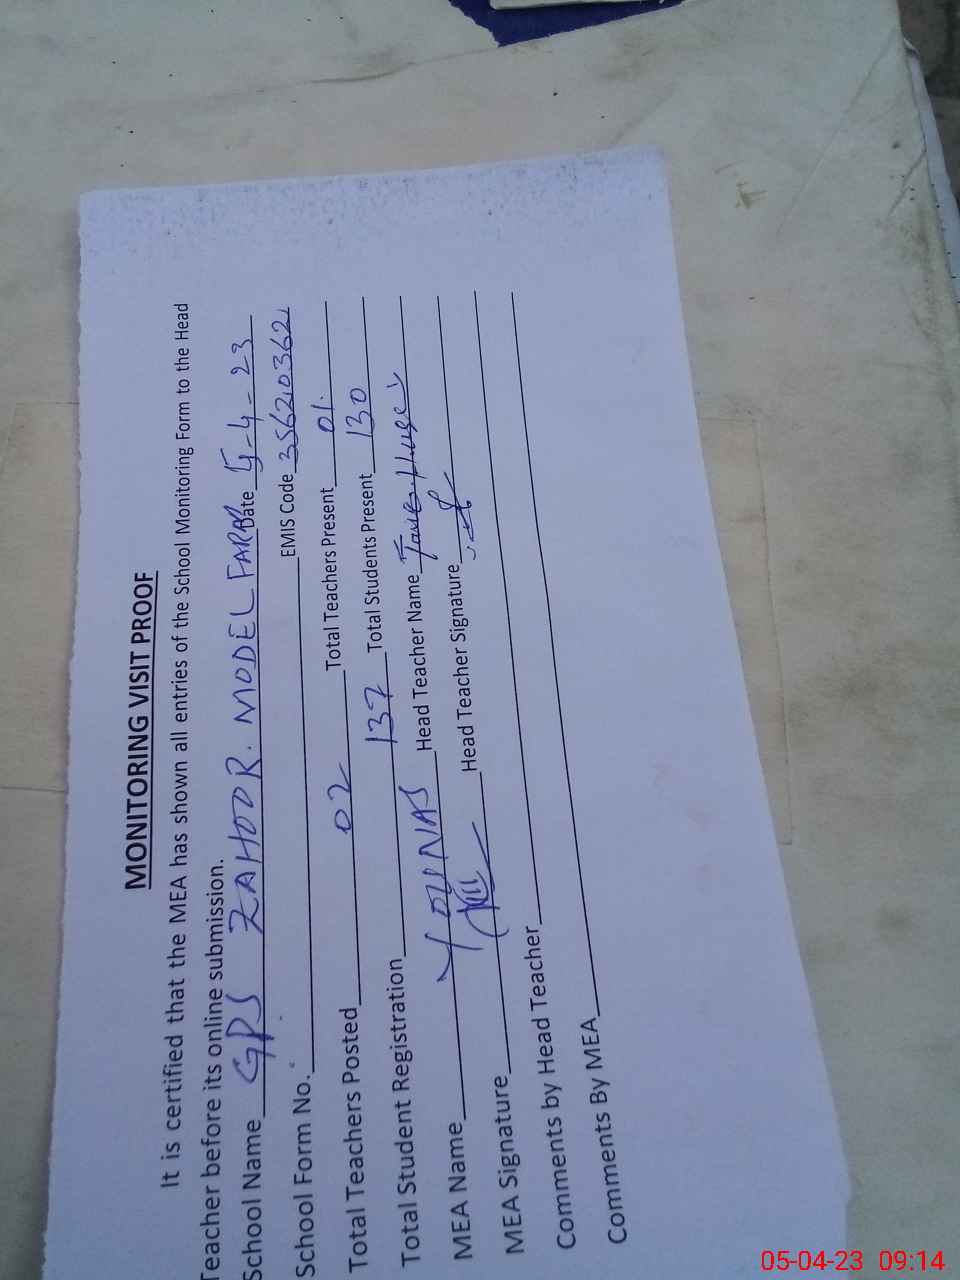 MONITORING VISIT PROOF
It is certified that the MEA has shown all entries of the School Monitoring Form to the Head
Teacher before its online submission.
School Name GPS ZAHOOR. MODEL FARM Date 5-4-23
School Form No. EMIS Code 35620362
Total Teachers Posted 02 Total Teachers Present 01.
Total Student Registration 137 Total Students Present 130
MEA Name YOUNAS Head Teacher Name
MEA Signature Head Teacher Signature
Comments by Head Teacher
Comments By MEA
05-04-23 09:14